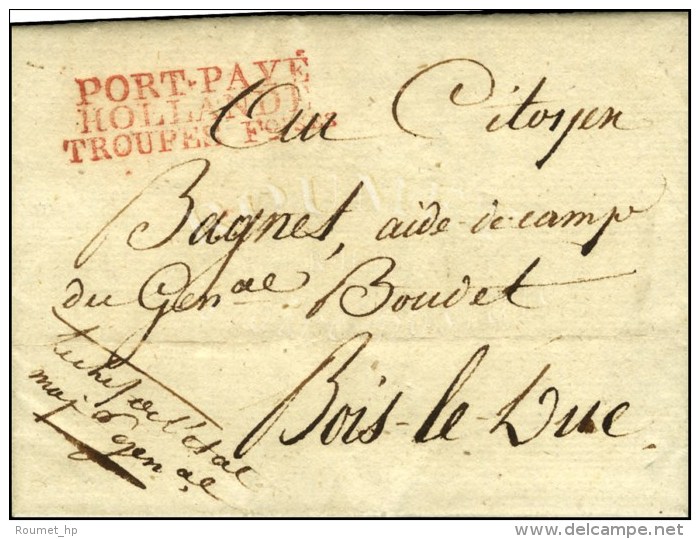 PORT-PAYÉ
HOLLANDE
TROUPES F.ses
Au Citoyen
Bagnet, aide-de-camp
du Gen.al Boudet
Bois-le-Duc.
Le chef de l'état
maj. gen.al
Roumet_hp
©delcampe.net